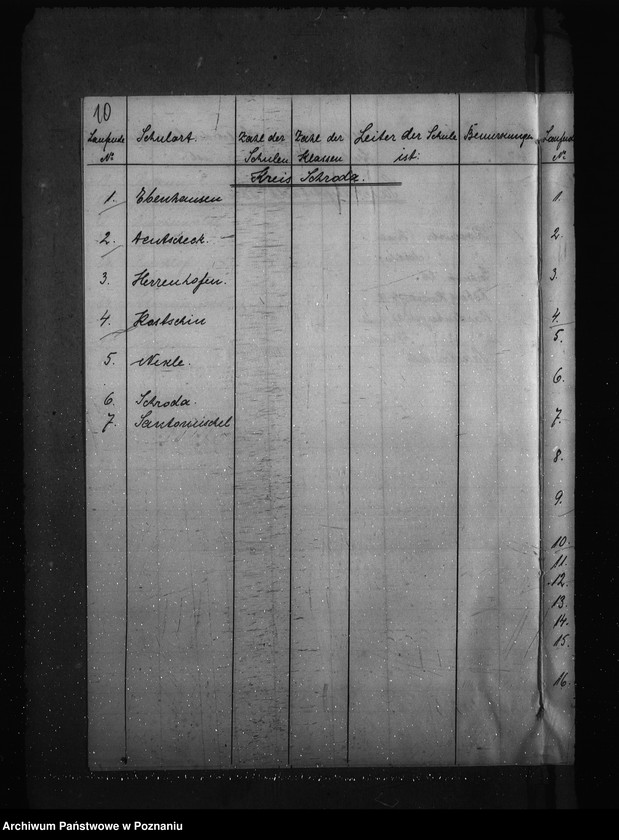 10
Laufende Schulort. Zahl der Zahl der Leiter der Schule Bemerkungen Laufende
No. Schulen Klassen ist: No.
Kreis Schroda.
1. Ebenhausen 1.
2. 2.
3. Herrenhofen. 3.
4. Kostschin 4.
5. Nekle. 5.
6. Schroda. 6.
7. Santomischel 7.
8.
9.
10.
11.
12.
13.
14.
15.
16.
Archiwum Państwowe w Poznaniu